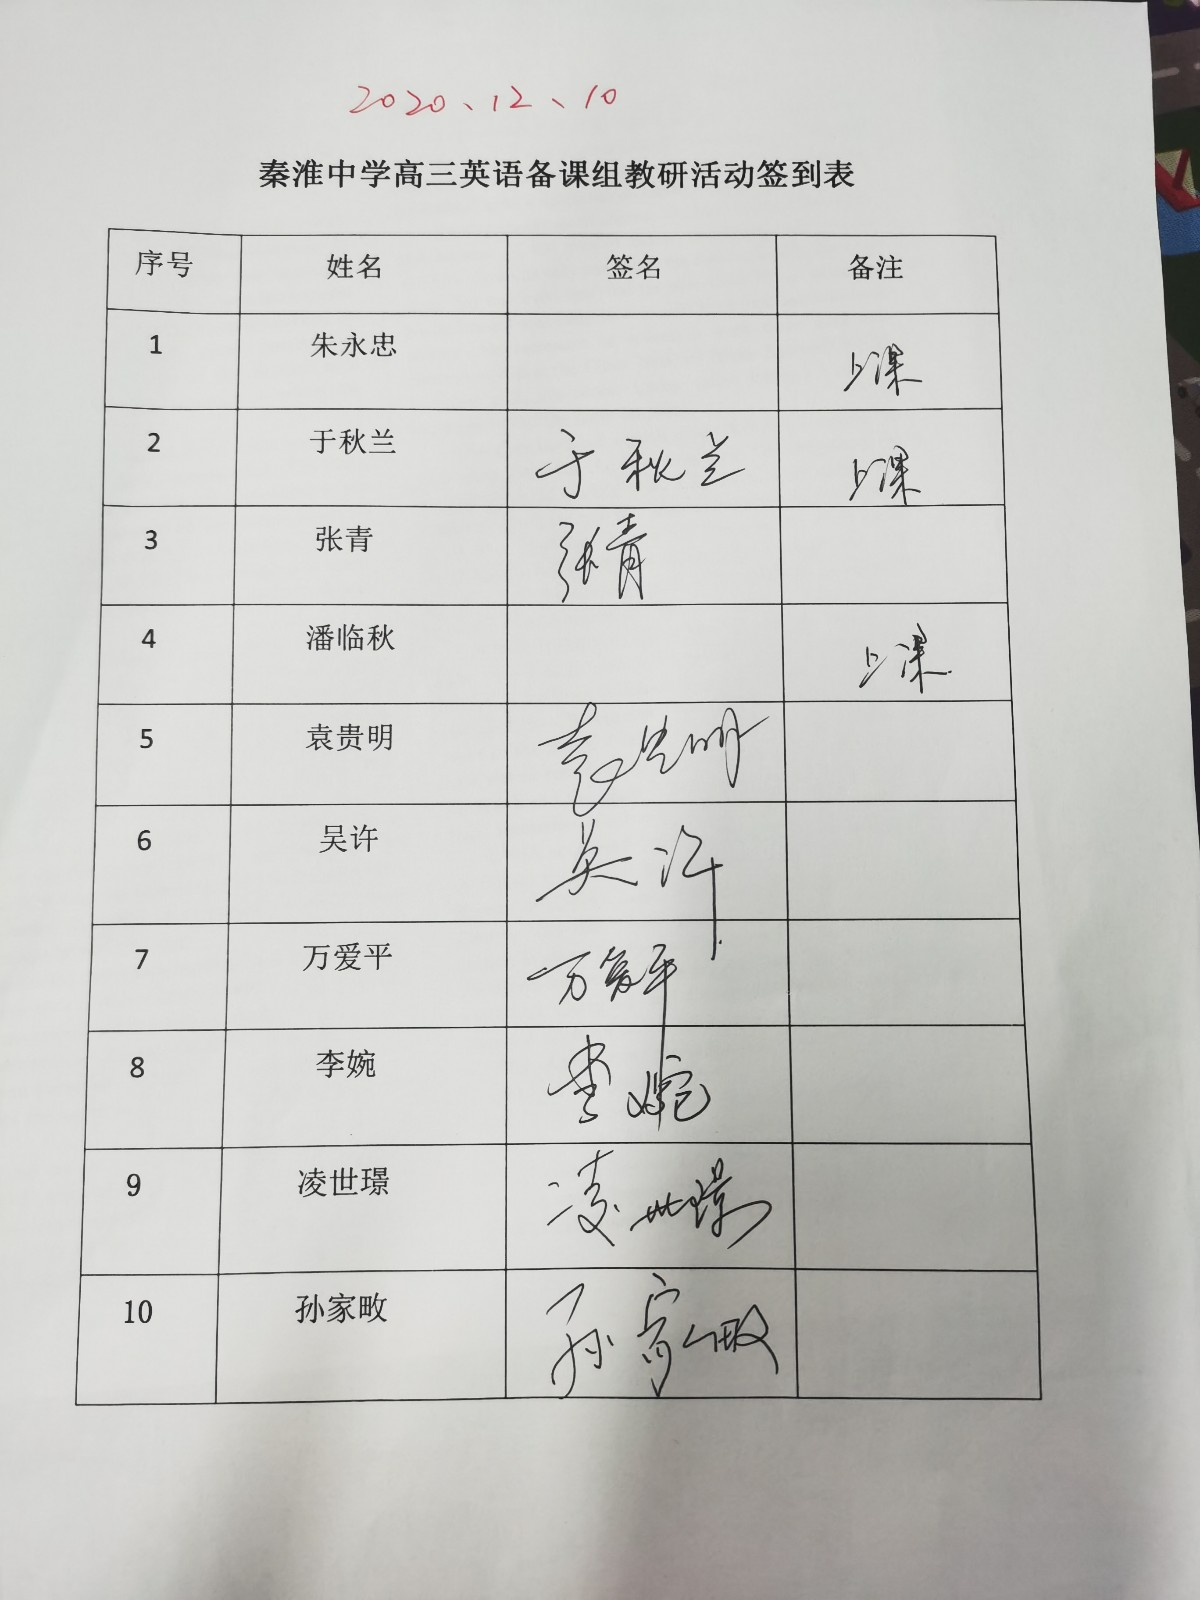 2020、12、10
秦淮中学高三英语备课组教研活动签到表
序号 姓名 签名 备注
1 朱永忠 上课
2 于秋兰 于秋兰 上课
3 张青 张青
4 潘临秋 上课
5 袁贵明 袁贵明
6 吴许 吴许
7 万爱平 万爱平
8 李婉 李婉
9 凌世璟 凌世璟
10 孙家畋 孙家畋